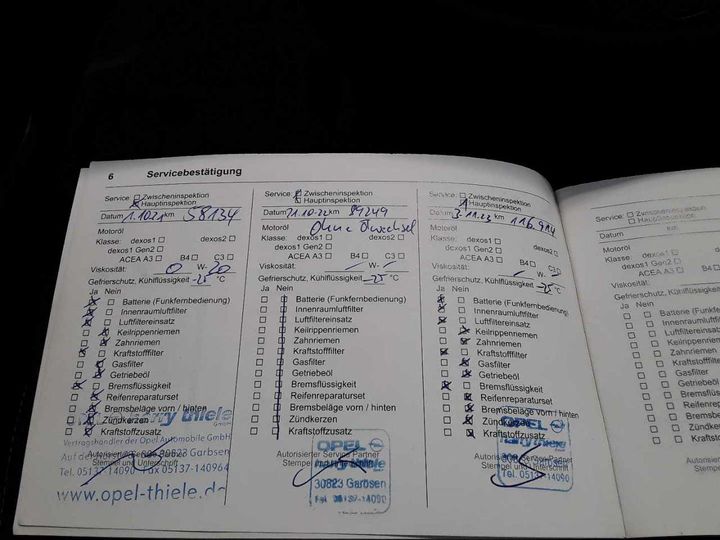 6 Servicebestätigung
Service: Zwischeninspektion
Hauptinspektion
Datum 1.10.21 km 58134
Motoröl
Klasse: dexos1 dexos2
dexos1 Gen2
ACEA A3 B4 C3
Viskosität: 0 W- 20
Gefrierschutz, Kühlflüssigkeit -25 °C
Ja Nein
Batterie (Funkfernbedienung)
Innenraumluftfilter
Luftfiltereinsatz
Keilrippenriemen
Zahnriemen
Kraftstofffilter
Gasfilter
Getriebeöl
Bremsflüssigkeit
Reifenreparaturset
Bremsbeläge vorn / hinten
Zündkerzen
Kraftstoffzusatz
harry thiele
Vertragshändler der Opel Automobile GmbH
Auf de 30823 Garbsen
Autorisierter Service
Stempel und Unterschrift
Tel. 05137-14090 Fax 05137-140964
www.opel-thiele.de
Service: Zwischeninspektion
Hauptinspektion
Datum 21.10.22 km 89249
Motoröl Ohne Ölwechsel
Klasse: dexos1 dexos2
dexos1 Gen2
ACEA A3 B4 C3
Viskosität: W-
Gefrierschutz, Kühlflüssigkeit -25 °C
Ja Nein
Batterie (Funkfernbedienung)
Innenraumluftfilter
Luftfiltereinsatz
Keilrippenriemen
Zahnriemen
Kraftstofffilter
Gasfilter
Getriebeöl
Bremsflüssigkeit
Reifenreparaturset
Bremsbeläge vorn / hinten
Zündkerzen
Kraftstoffzusatz
OPEL
Autorisierter Service Partner
harry thiele
Stempel
30823 Garbsen
Tel. 05137-14090
Service: Zwischeninspektion
Hauptinspektion
Datum 3.11.23 km 116.914
Motoröl
Klasse: dexos1 dexos2
dexos1 Gen2
ACEA A3 B4 C3
Viskosität: W-
Gefrierschutz, Kühlflüssigkeit -25 °C
Ja Nein
Batterie (Funkfernbedienung)
Innenraumluftfilter
Luftfiltereinsatz
Keilrippenriemen
Zahnriemen
Kraftstofffilter
Gasfilter
Getriebeöl
Bremsflüssigkeit
Reifenreparaturset
Bremsbeläge vorn / hinten
Zündkerzen
Kraftstoffzusatz
OPEL
Autorisierter Service Partner
Stempel und Unterschrift
Tel. 05137-14090
Service: Zwischeninspektion
Hauptinspektion
Datum km
Motoröl
Klasse: dexos1
dexos1 Gen2
ACEA A3
Viskosität:
Gefrierschutz, Kühlflüssigkeit
Ja Nein
Batterie (Funkfern
Innenraumluftfilter
Luftfiltereinsatz
Keilrippenriemen
Zahnriemen
Kraftstofffilter
Gasfilter
Getriebeöl
Bremsflüssigkeit
Reifenreparaturset
Bremsbeläge vor
Zündkerzen
Kraftstoffzusatz
Autorisierter Service
Stempel und